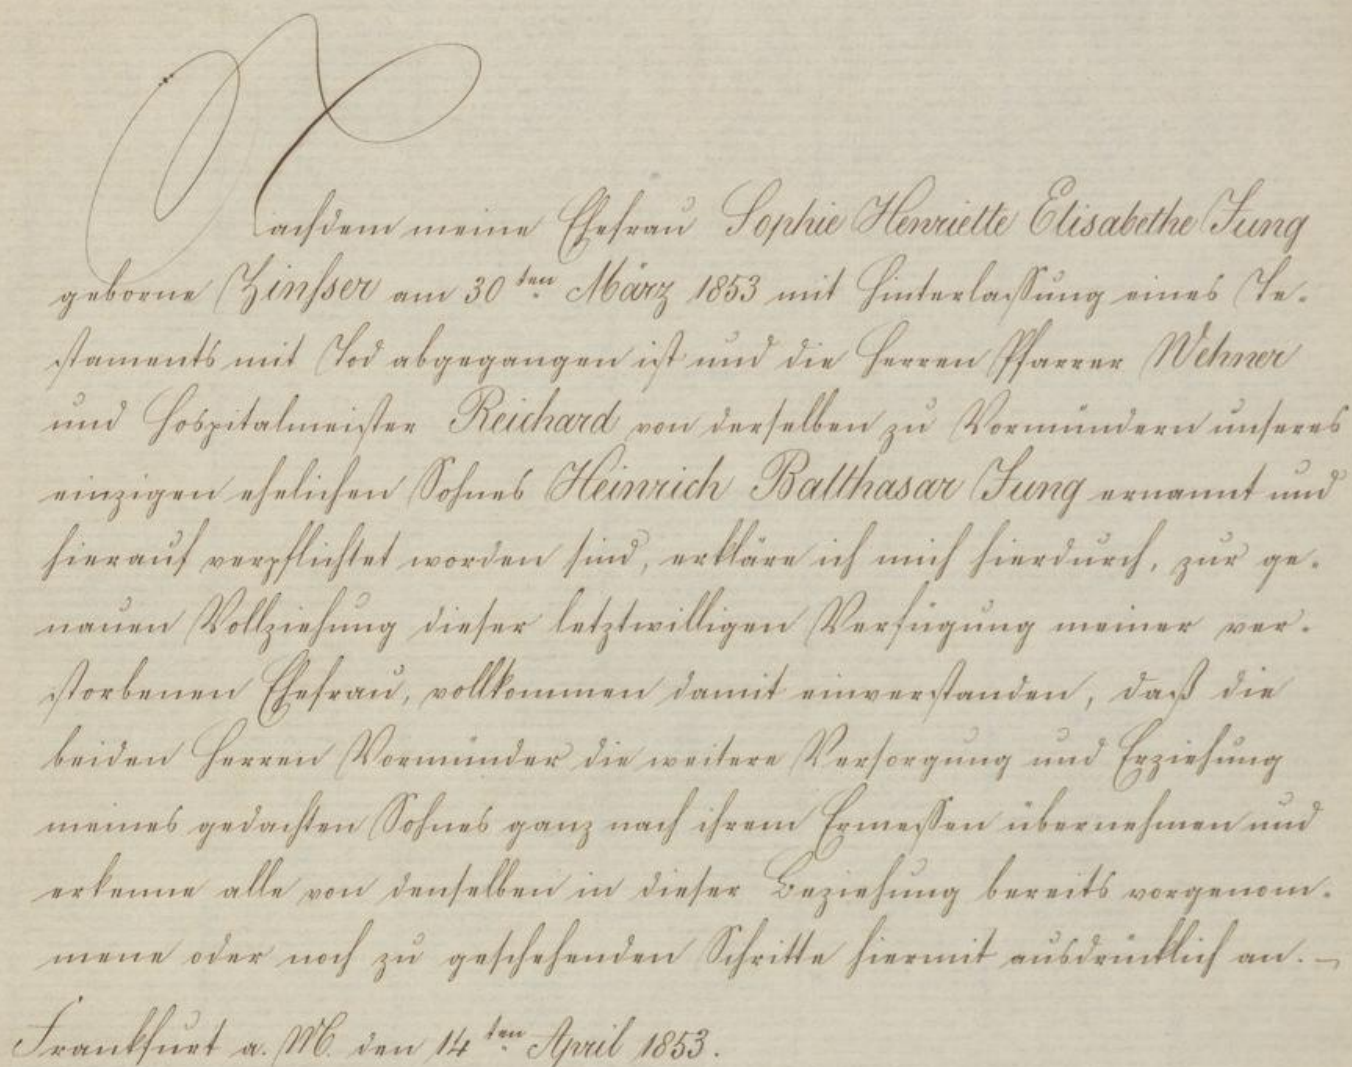 Nachdem meine Ehefrau Sophie Henriette Elisabethe Jung
geborne Zinsser am 30ten März 1853 mit Hinterlassung eines Te-
staments mit Tod abgegangen ist und die Herren Pfarrer Wehner
und Hospitalmeister Reichard von derselben zu Vormündern unseres
einzigen ehelichen Sohnes Heinrich Balthasar Jung ernannt und
hierauf verpflichtet worden sind, erkläre ich mich hierdurch, zur ge-
nauen Vollziehung dieser letztwilligen Verfügung meiner ver-
storbenen Ehefrau, vollkommen damit einverstanden, daß die
beiden Herren Vormünder die weitere Versorgung und Erziehung
meines gedachten Sohnes ganz nach ihrem Ermessen übernehmen und
erkenne alle von denselben in dieser Beziehung bereits vorgenom-
mene oder noch zu geschehenden Schritte hiermit ausdrücklich an. -
Frankfurt a. M. den 14ten April 1853.